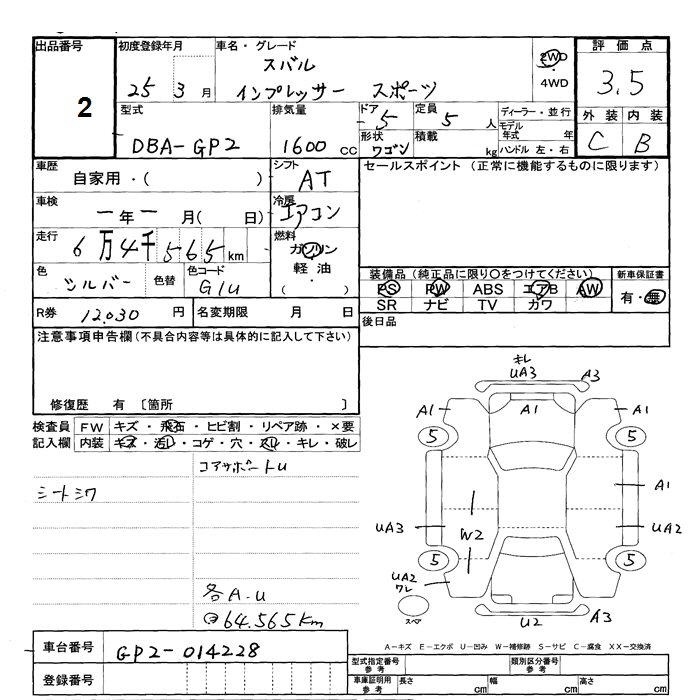 出品番号
2
初度登録年月
25 3 月
車名・グレード
スバル
インプレッサー スポーツ
2WD
・
4WD
評価点
3.5
外装 内装
C B
型式
DBA-GP2
排気量
1600 cc
ドア
-5
形状
ワゴン
定員
5 人
積載
kg
ディーラー・並行
モデル
年式 年
ハンドル 左・右
車歴
自家用・( )
シフト
AT
セールスポイント (正常に機能するものに限ります)
車検
一年一 月( 日)
冷房
エアコン
走行
6万4千565km
燃料
ガソリン
軽油
・( )
色
シルバー
色替
色コード
G1U
装備品 (純正品に限り○をつけてください)
PS PW ABS エアB AW
SR ナビ TV カワ
新車保証書
有・無
R券 12,030 円
名変期限 月 日
後日品
注意事項申告欄(不具合内容等は具体的に記入して下さい)
修復歴 有 〔箇所 〕
検査員
記入欄
FW キズ・飛石・ヒビ割・リペア跡・×要
内装 キズ・汚れ・コゲ・穴・スレ・キレ・破レ
コアサポートU
シートシワ
各A.U
64.565Km
キレ
UA3 A3
A1 A1 A1
5 5
A1
UA3 UA2
W2
5 5
UA2
ワレ
スペア
U2 A3
A-キズ E-エクボ U-凹み W-補修跡 S-サビ C-腐食 XX-交換済
車台番号 GP2-014228
登録番号
型式指定番号
参考
類別区分番号
参考
車庫証明用
参考
長さ cm 幅 cm 高さ cm